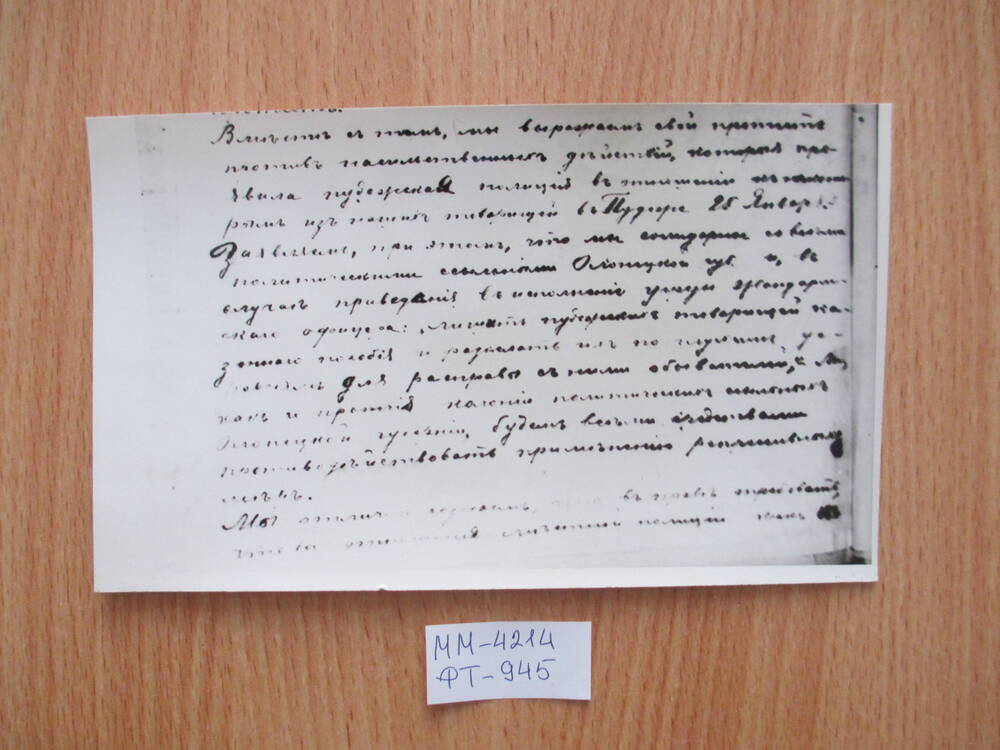 Вмѣстѣ съ тѣмъ, мы выражаемъ свой протестъ
противъ насильственныхъ дѣйствій, которыя про-
явила пудожская полиція въ отношеніи къ нѣкото-
рымъ изъ нашихъ товарищей въ Пудожѣ 25 Января.
Заявляемъ, при этомъ, что мы солидарны со всѣми
политическими ссыльными Олонецкой губ. и, въ
случаѣ приведенія въ исполненіе угрозы жандарм-
скаго офицера: лишить пудожскихъ товарищей ка-
зеннаго пособія и разослать ихъ по глухимъ де-
ревнямъ для расправы съ ними обывателей,
какъ и противъ политическихъ ссыльныхъ
Олонецкой губерніи, будемъ всѣми средствами
противодѣйствовать примѣненію репрессивныхъ
мѣръ.
Мы въ правѣ требовать,
чтобы полиціи
ММ-4214
ФТ-945